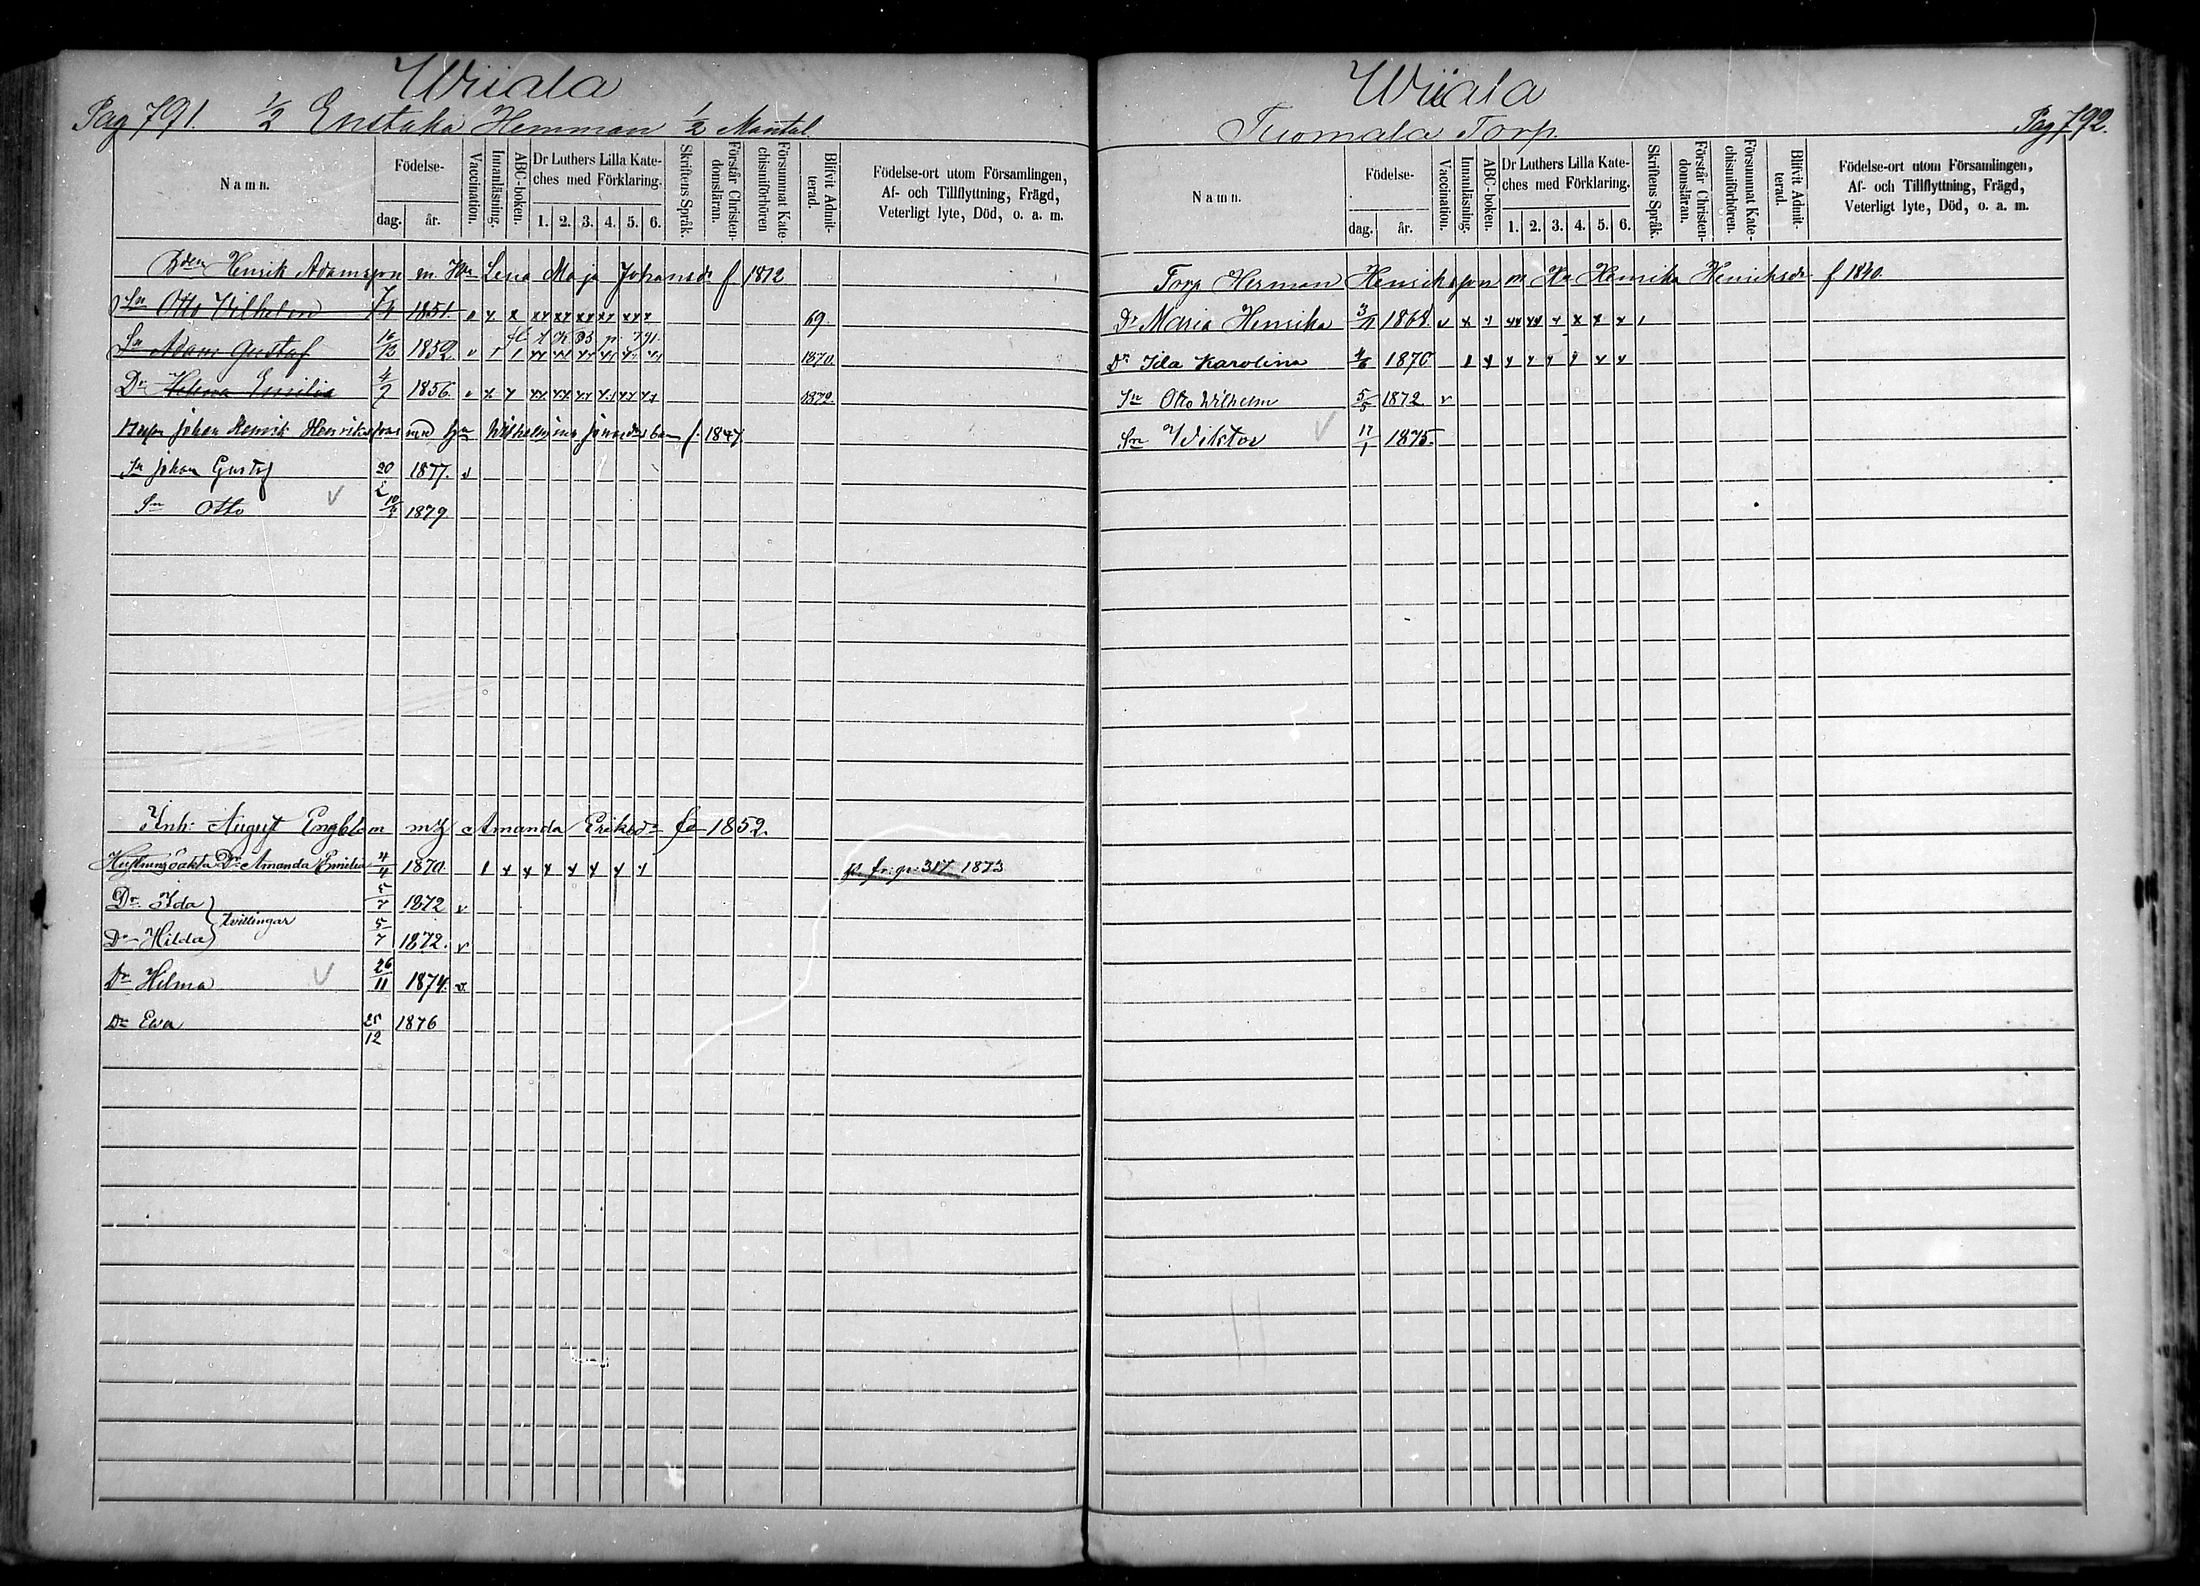 Wiiala
Pag 791. 1/2 Enstaka Hemman 1/2 Mantal
Namn. Födelse- dag. år. Vaccination. Innanläsning. ABC-boken. Dr Luthers Lilla Kate-ches med Förklaring. 1. 2. 3. 4. 5. 6. Skriftens Språk. Förstår Christen-domsläran. Försummat Kate-chismiförhören Blifvit Admit-terad. Födelse-ort utom Församlingen, Af- och Tillflyttning, Frägd, Veterligt lyte, Död, o. a. m.
Bden Henrik Adamsson m. Hu Lena Maja Johansdr f 1812
Sn Otto Vilhelm 1851. v x x xx xx xx xx xx x 69.
fl. p. 791.
Sn Adam Gustaf 1852 1870.
Dr Helena Emilia 4/7 1856. 1872.
Johan Henrik Henriksson med hu Wilhelmina f. 1847
Sn Johan Gustaf 20/2 1877. v
Sn Otto 1879
Inh: August Englom m h Amanda Eriksdr fe 1852.
Dr Amanda Emilia 4/4 1870. fr. p. 317 1873
Dr Ida 5/7 1872 v
tvillingar
Dr Hilda 5/7 1872. v
Dr Hilma 26/11 1874. v.
Dr Ewa 25/12 1876
Wiiala
Tuomala Torp. Pag 792.
Namn. Födelse- dag. år. Vaccination. Innanläsning. ABC-boken. Dr Luthers Lilla Kate-ches med Förklaring. 1. 2. 3. 4. 5. 6. Skriftens Språk. Förstår Christen-domsläran. Försummat Kate-chismiförhören. Blifvit Admit-terad. Födelse-ort utom Församlingen, Af- och Tillflyttning, Frägd, Veterligt lyte, Död, o. a. m.
Torp Herman Henriksson m Hu Henrika Henriksdr f 1840.
Dr Maria Henrika 3/11 1868. v x x xx xx x x x x 1
Dr Ida Karolina 4/6 1870
Sn Otto Wilhelm 5/5 1872 v
Sn Wiktor 17/1 1875.